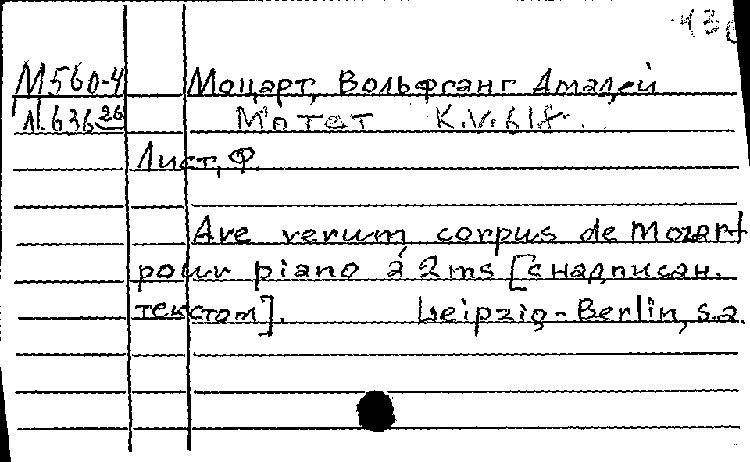 М560-4 Моцарт, Вольфганг Амадей
Л636 26 Мотет K.V. 618.
Лист, Ф.
Ave verum corpus de Mozart
pour piano à 2 ms [с надписан.
текстом]. Leipzig-Berlin, s.a.